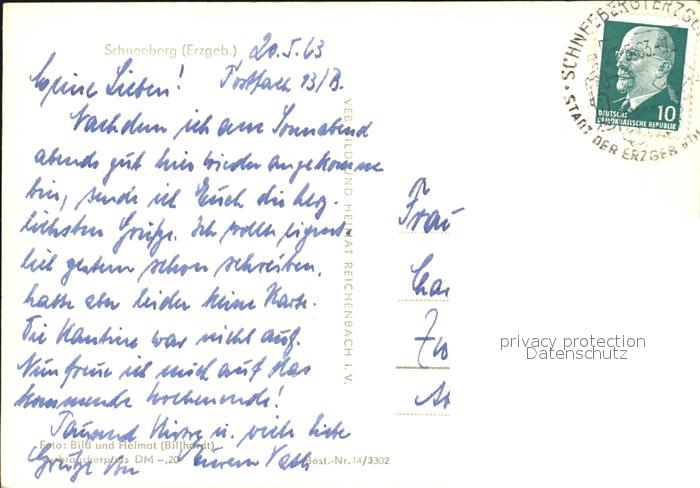 Schneeberg (Erzgeb.) 20.5.63
Meine Lieben! Postfach 93/B.
Nachdem ich am Sonnabend
abends gut hier wieder angekomme
bin, sende ich Euch die herz-
lichsten Grüße. Ich wollte eigent-
lich gestern schon schreiben,
hatte aber leider keine Karte.
Die Kantine war nicht auf.
Nun freue ich mich auf das
kommende Wochenende!
Tausend Küsse u. viele liebe
Grüße von Eurem Vati
Foto: Bild und Heimat (Billhardt)
Verbraucherpreis DM -,20 Best.-Nr. 14/3302
VEB BILD UND HEIMAT REICHENBACH I. V.
Frau
Zwi
privacy protection
Datenschutz
10
DEUTSCHE
DEMOKRATISCHE REPUBLIK
SCHNEEBERG (ERZGEB
STADT DER ERZGEB